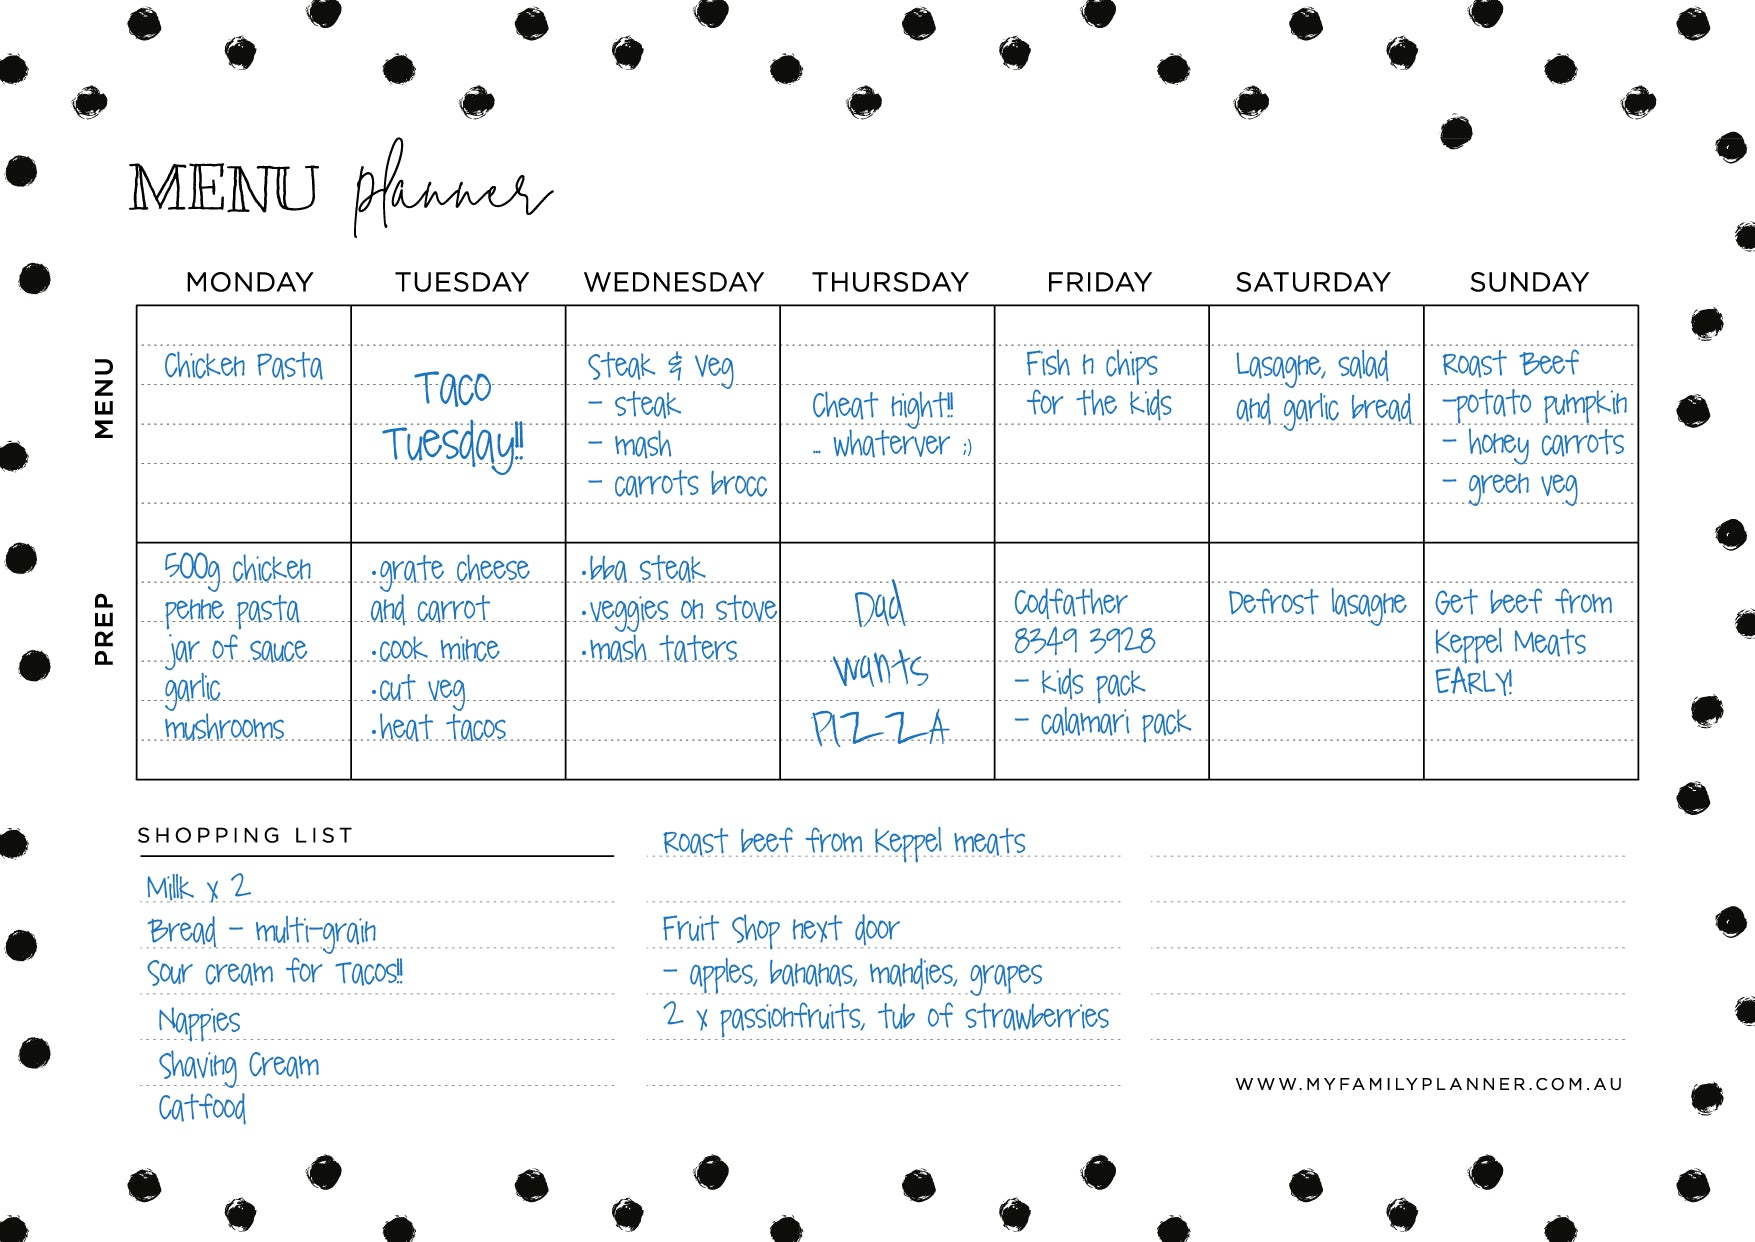 MENU planner
MONDAY TUESDAY WEDNESDAY THURSDAY FRIDAY SATURDAY SUNDAY
MENU
Chicken Pasta
Taco
Tuesday!!
Steak & Veg
- steak
- mash
- carrots brocc
Cheat night!!
... whaterver ;)
Fish n chips
for the kids
Lasagne, salad
and garlic bread
Roast Beef
-potato pumpkin
- honey carrots
- green veg
PREP
500g chicken
penne pasta
jar of sauce
garlic
mushrooms
·grate cheese
and carrot
·cook mince
·cut veg
·heat tacos
·bba steak
·veggies on stove
·mash taters
Dad
wants
PIZZA
Codfather
8349 3928
- kids pack
- calamari pack
Defrost lasagne
Get beef from
Keppel Meats
EARLY!
SHOPPING LIST
Millk x 2
Bread - multi-grain
Sour cream for Tacos!!
Nappies
Shaving Cream
Catfood
Roast beef from Keppel meats
Fruit Shop next door
- apples, bananas, mandies, grapes
2 x passionfruits, tub of strawberries
WWW.MYFAMILYPLANNER.COM.AU